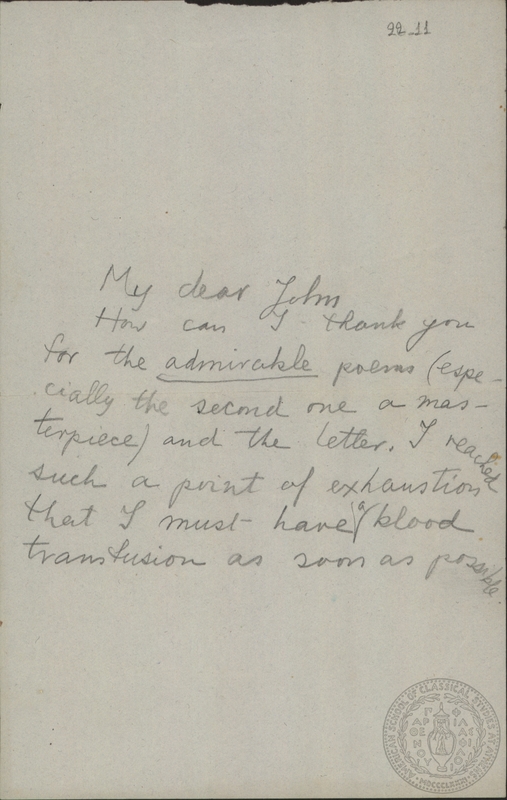 22-11
My dear John
How can I thank you
for the admirable poems (espe-
cially the second one a mas-
terpiece) and the letter. I reached
such a point of exhaustion
that I must have a blood
transfusion as soon as possible.
AMERICAN SCHOOL OF CLASSICAL STUDIES AT ATHENS